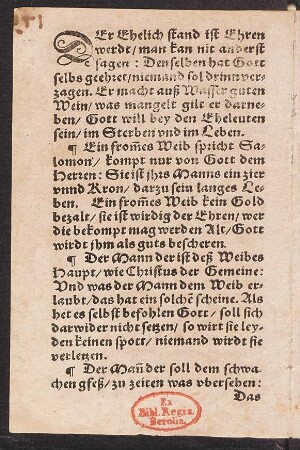 DEr Ehelich stand ist Ehren
werdt / man kan nit anderst
sagen : Denselben hat Gott
selbs geehret / niemand sol drinn ver-
zagen. Er macht auß Wasser guten
Wein / was mangelt gilt er darne-
ben / Gott will bey den Eheleuten
sein / im Sterben vnd im Leben.
¶ Ein from̃es Weib spricht Sa-
lomon / kompt nur von Gott dem
Herren : Sie ist jhrs Manns ein zier
vnnd Kron / darzu sein langes Le-
ben. Ein from̃es Weib kein Gold
bezalt / sie ist wirdig der Ehren / wer
die bekompt mag werden Alt / Gott
wirdt jhm als guts bescheren.
¶ Der Mann der ist deß Weibes
Haupt / wie Christus der Gemeine :
Vnd was der Mann dem Weib er-
laubt / das hat ein solchẽ scheine. Als
het es selbst befohlen Gott / soll sich
darwider nicht setzen / so wirt sie ley-
den keinen spott / niemand wirdt sie
verletzen.
¶ Der Mañ der soll dem schwa-
chen gfeß / zu zeiten was vbersehen :
Das
Ex
Bibl. Regia
Berolin.